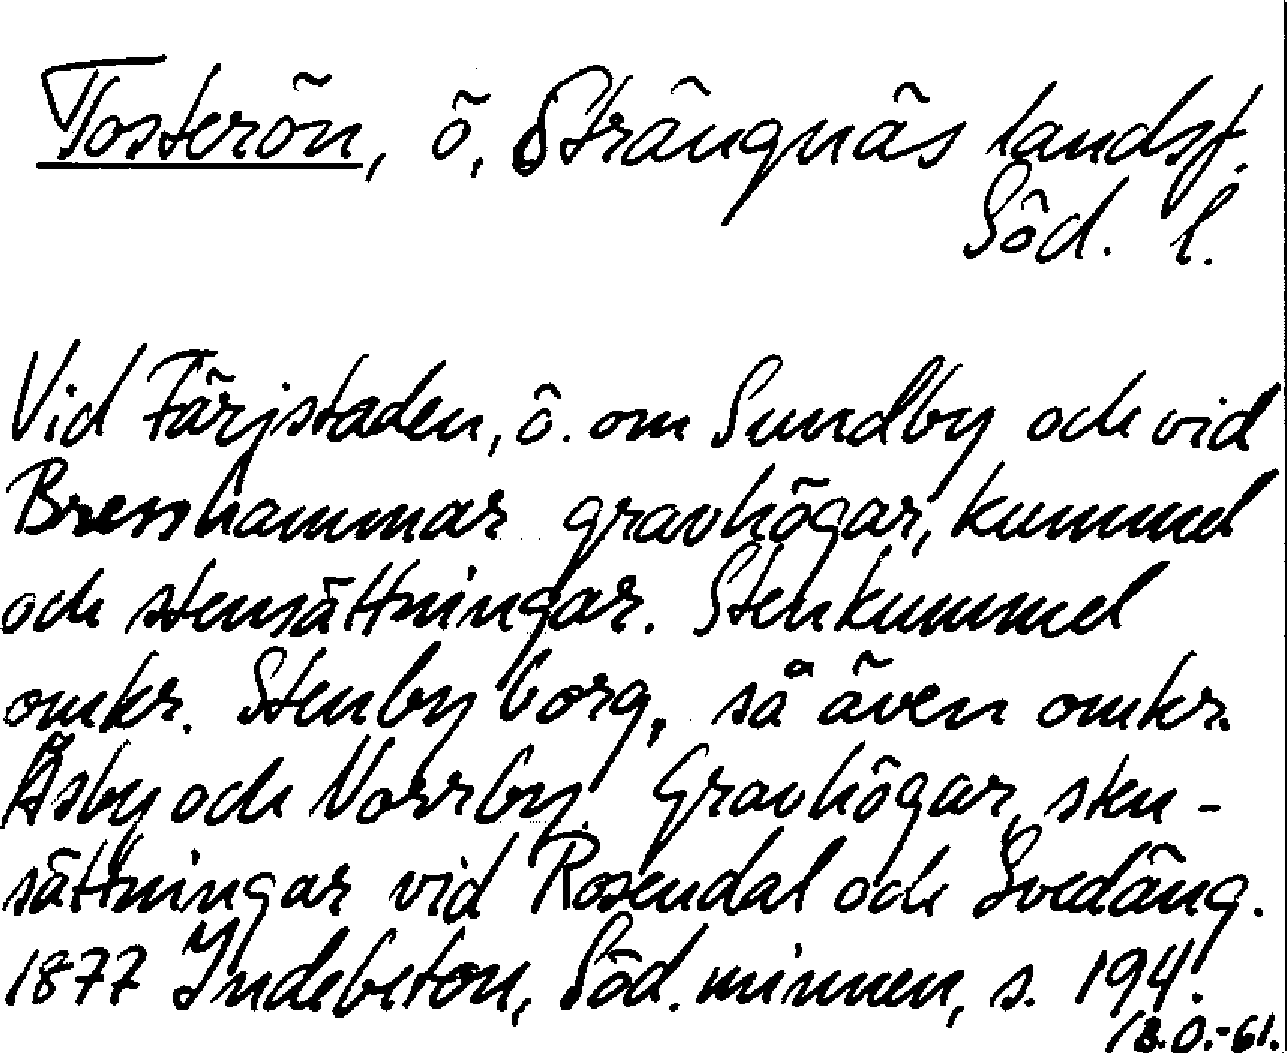 Tosterön, ö, Strängnäs landsf.
Söd. l.
Vid Färjstaden, ö. om Sundby och vid
Bresshammar gravhögar, kummel
och stensättningar. Stenkummel
omkr. Stenby borg, så även omkr.
Åsby och Norrby. Gravhögar, sten-
sättningar vid Rosendal och Svedäng.
1877 Indebetou, Söd. minnen, s. 194.
B.O.-61.